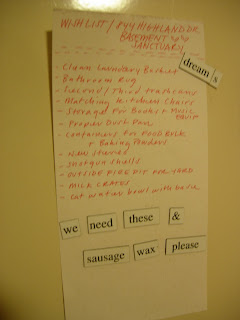 WISH LIST / HIGHLAND DR.
BASEMENT
SANCTUARY
dream s
- Clean Laundry Basket
- Bathroom Rug
- Second / Third trashcans
- Matching Kitchen Chairs
- Storage for Books & Music
- Proper Dust Pan
- Containers for FOOD BULK
& Baking Powders
- New
- Shotgun Shells
- OUTSIDE FIRE PIT FOR YARD
- MILK CRATES
- Cat water bowl with
we need these &
sausage wax please